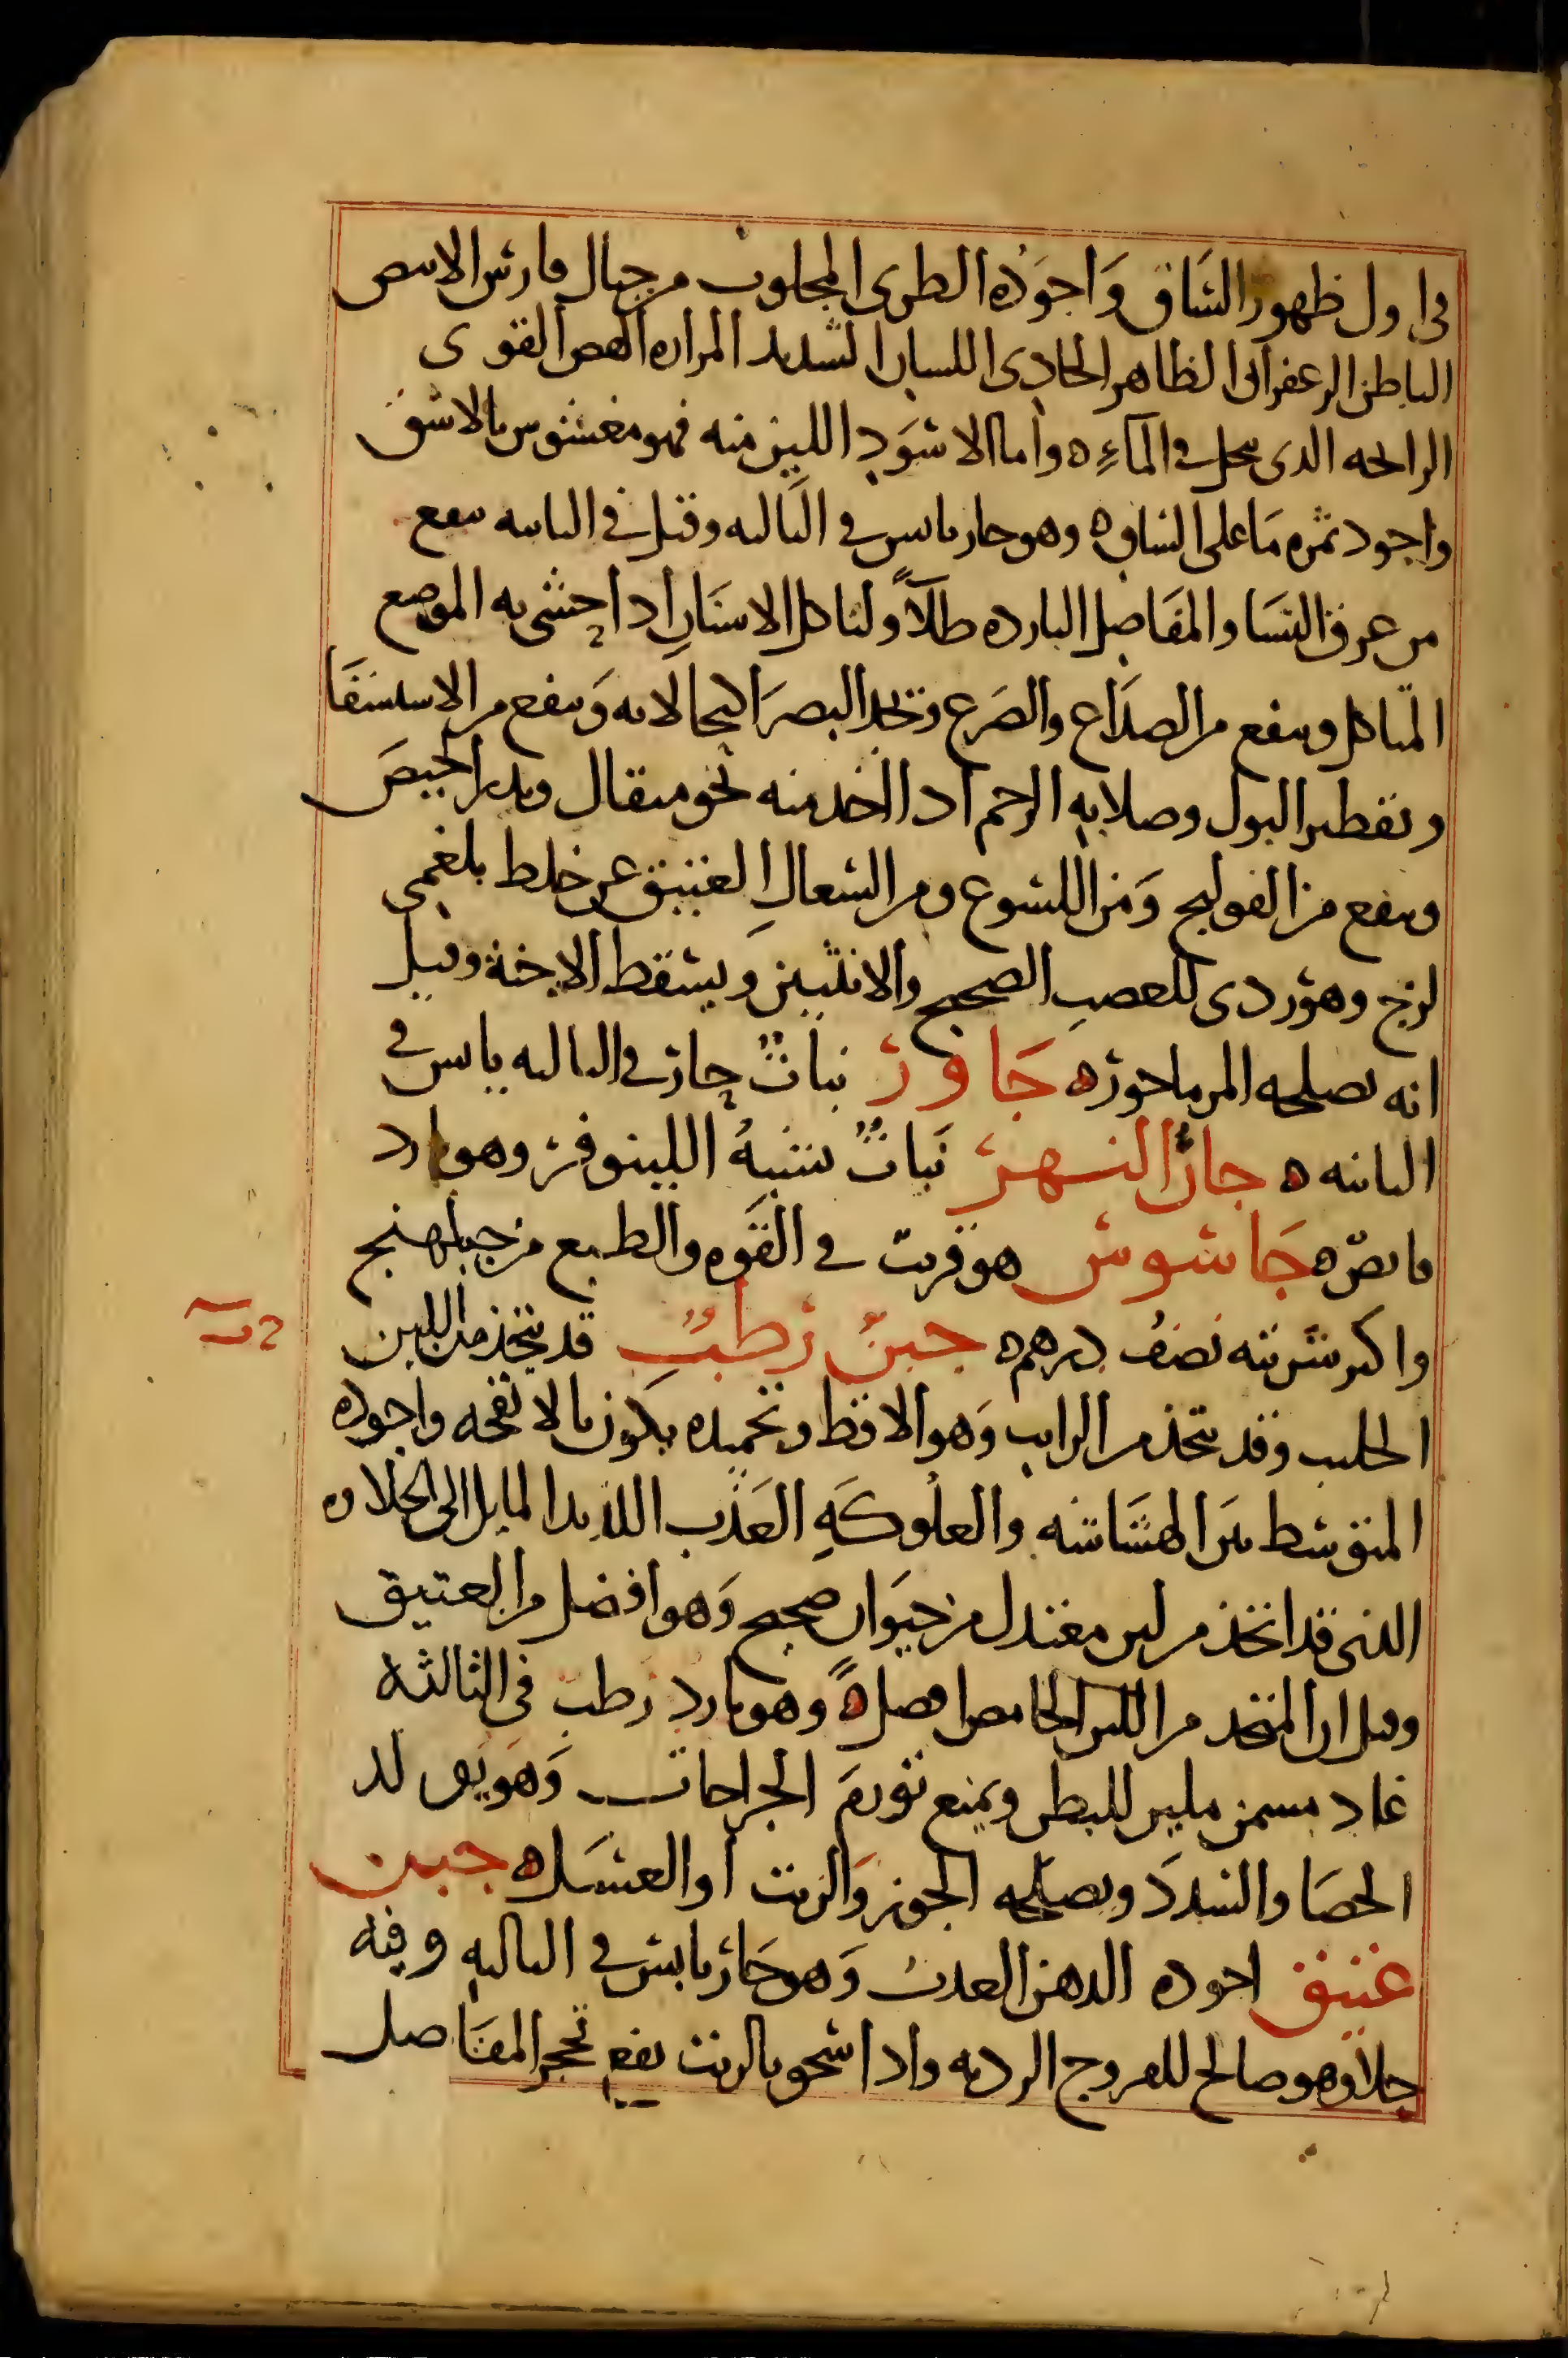 في اول ظهور الساق واجوده الطري المجلوب من جبال فارس الابيض
الباطن الزعفراني الظاهر الحاذي اللسان الشديد المراره الهش القوي
الرائحه الذي ينحل في الماء ه واما الاسود اللين منه فهو مغشوش بالاشق
واجود ثمره ما على الساق ه وهو حار يابس في الثالثه وقيل في الثانيه ينفع
من عرق النسا والمفاصل البارده طلاً ولتاكل الاسنان اذا حشى به الموضع
المتاكل وينفع من الصداع والصرع ويحد البصر اكتحالا به وينفع من الاستسقا
وتقطير البول وصلابه الرحم اذا اتخذ منه نحو مثقال ويدر الحيض
وينفع من القولنج ومن اللسوع ومن السعال العتيق عن خلط بلغمي
لزج وهو ردي للعصب الصحيح والانثيين ويسقط الاجنة وقيل
انه يصلحه المرماحوز ه جاور نبات حار في الثالثه يابس في
الثانيه ه جار النهر نبات يشبه اللينوفر وهو بارد
قابض ه جاسوس هو قريب في القوه والطبع من جبلهنج
واكثر شربته نصف درهم ه جبن رطب قد يتخذ من اللبن
الحليب وقد يتخذ من الرايب وهو الاقط وتجميده يكون بالانفحه واجوده
المتوسط بين الهشاشه والعلوكه العذب اللذيذ المايل الى الحلاوه
الذي قد اتخذ من لبن معتدل من حيوان صحيح وهو افضل من العتيق
وقيل ان المتخذ من اللبن الحامض افضل ه وهو بارد رطب في الثالثه
غاذ مسمن ملين للبطن ويمنع تورم الجراحات وهو يولد
الحصا والسدد ويصلحه الجوز والزيت او العسل ه جبن
عتيق اجوده الدهن العذب وهو حار يابس في الثالثه وفيه
جلا وهو صالح للقروح الرديه واذا سحق بالزيت نفع تحجر المفاصل